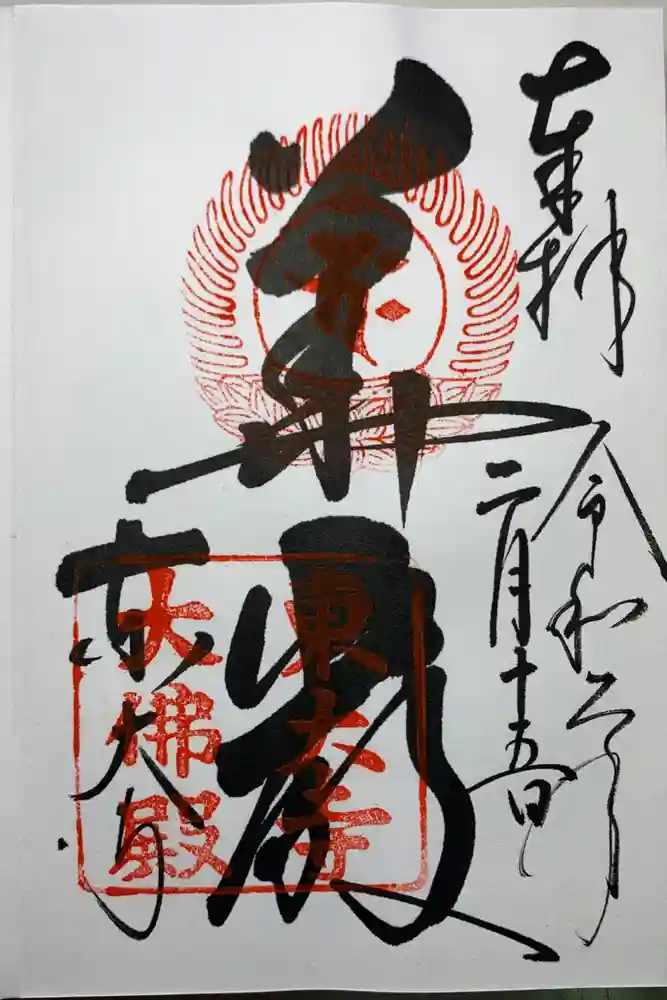 奉拝
令和二年
二月十五日
華嚴
東大寺
東大寺
大佛殿